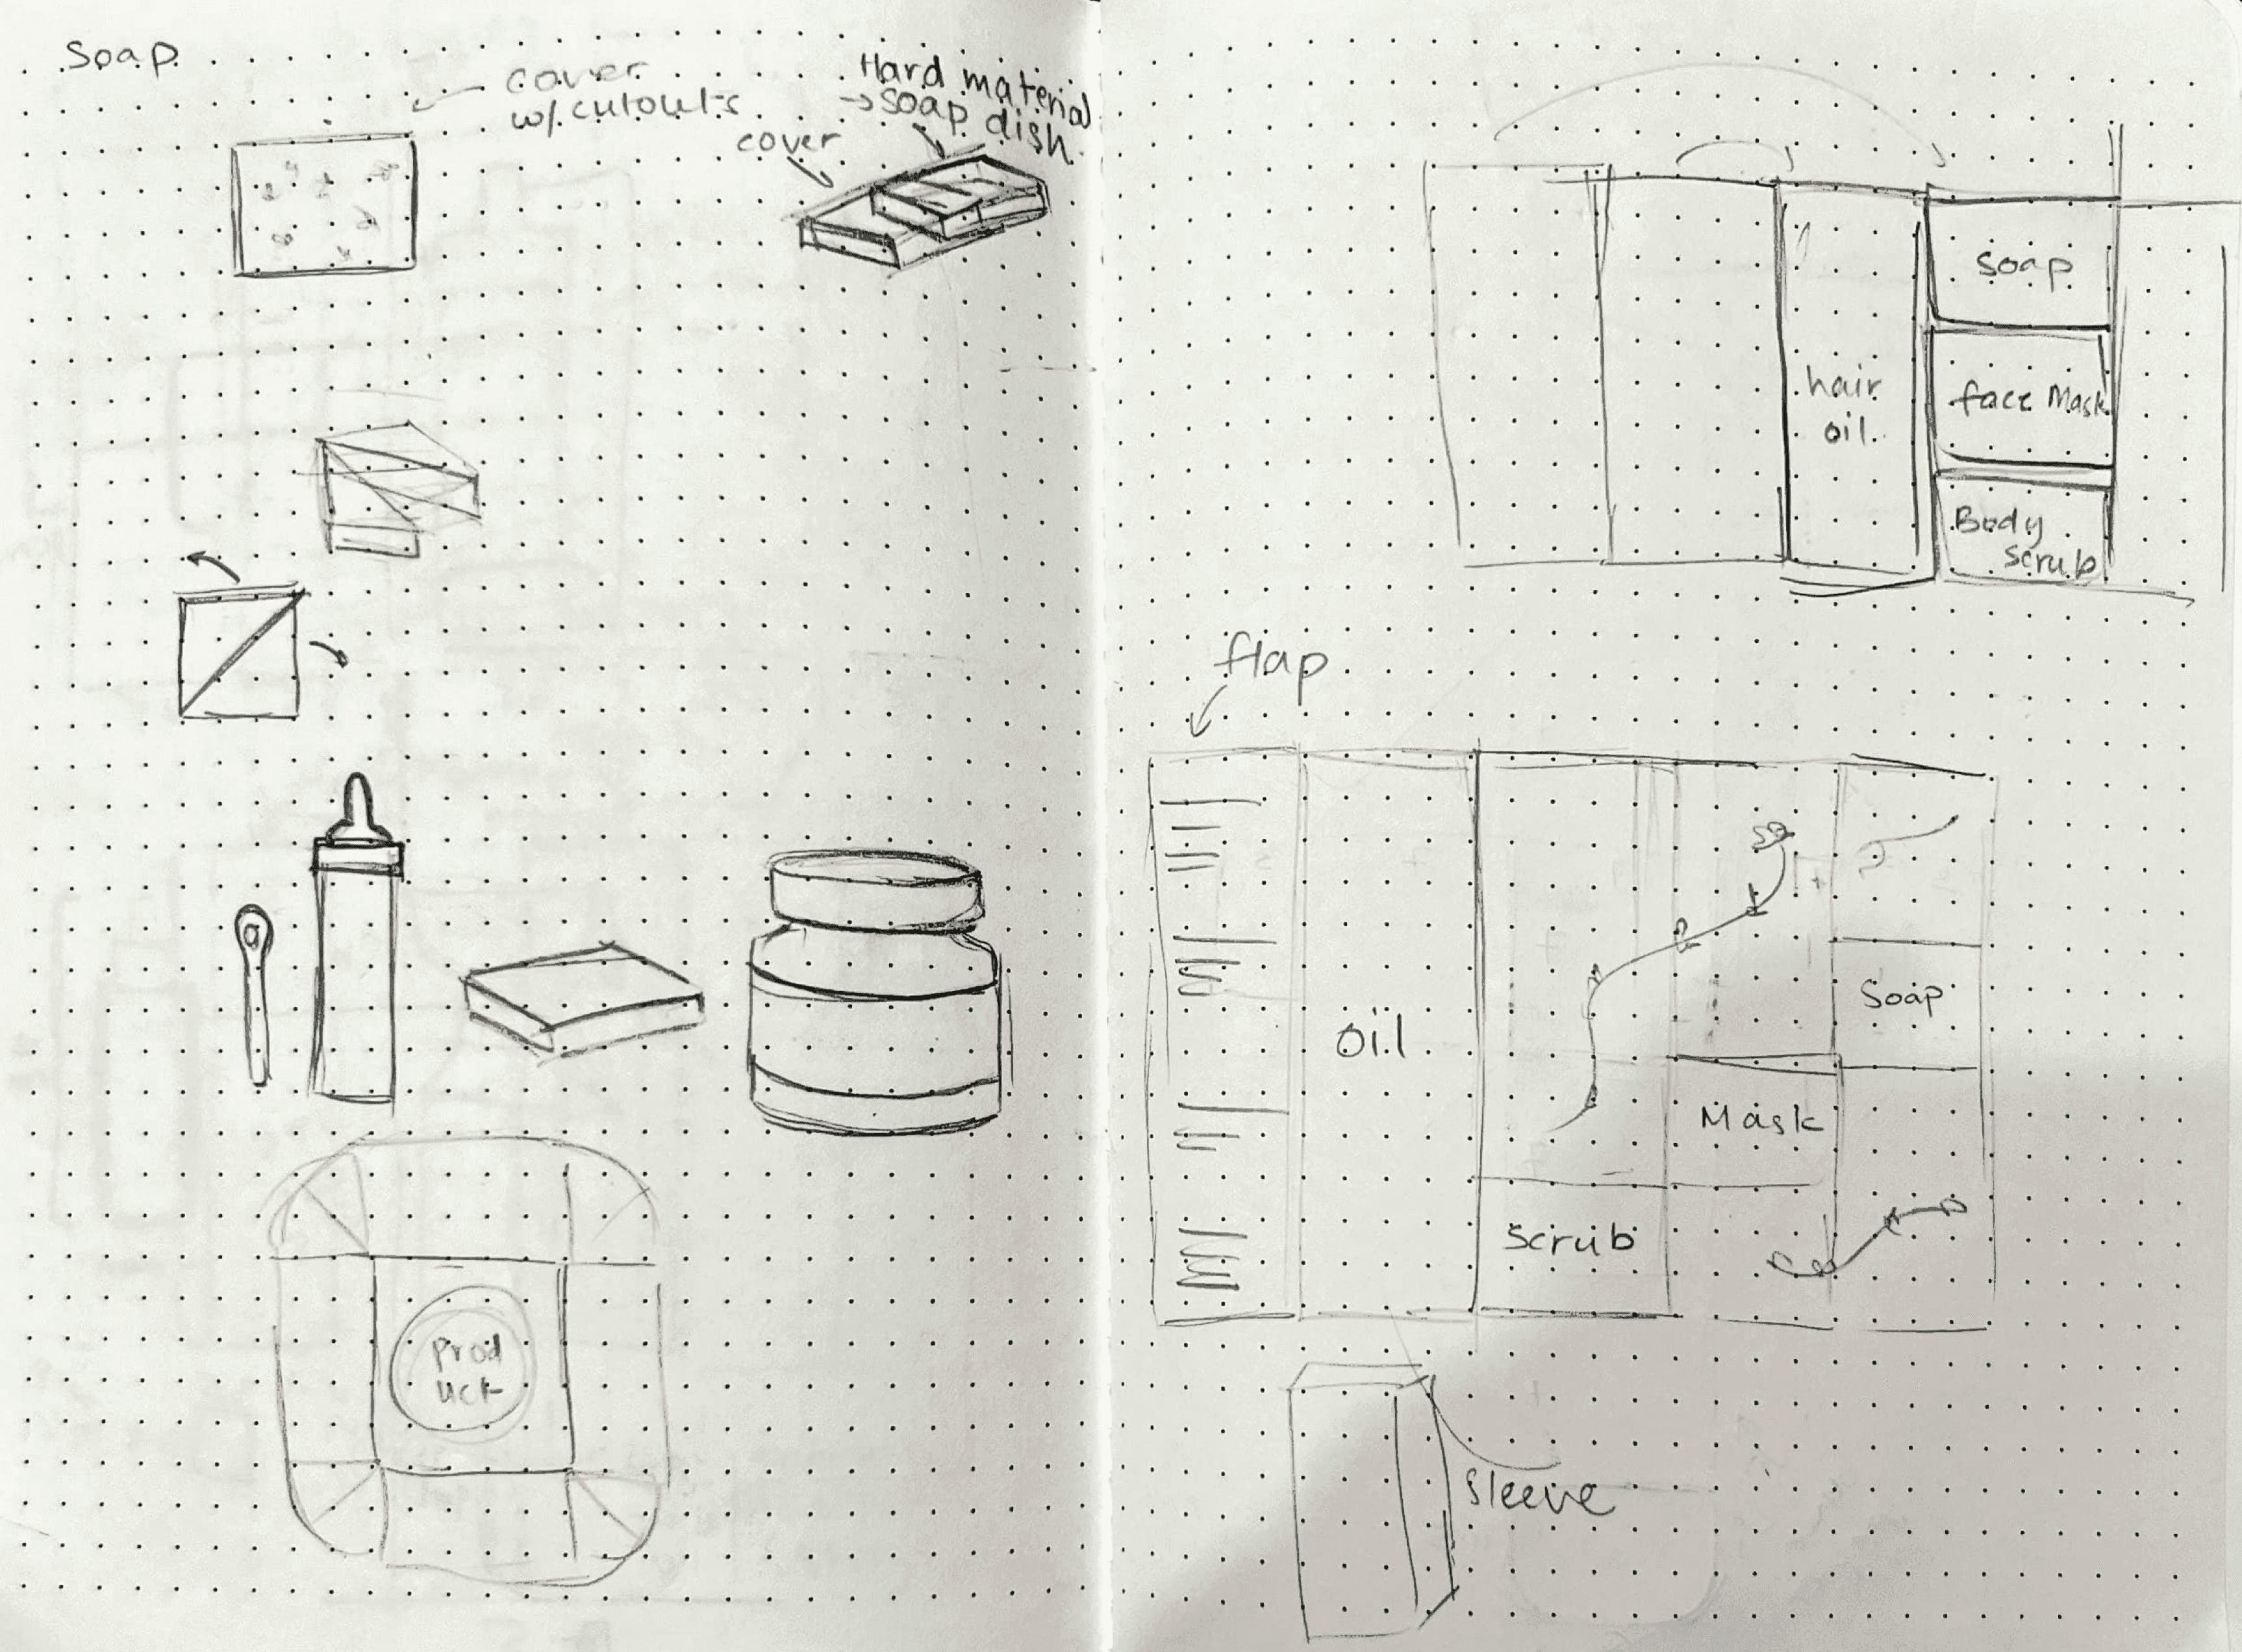 Soap
cover
w/ cutouts
Hard material
→ soap dish
cover
Prod
uct
soap
hair
oil
face Mask
Body
scrub
flap
oil
Soap
Mask
Scrub
Sleeve